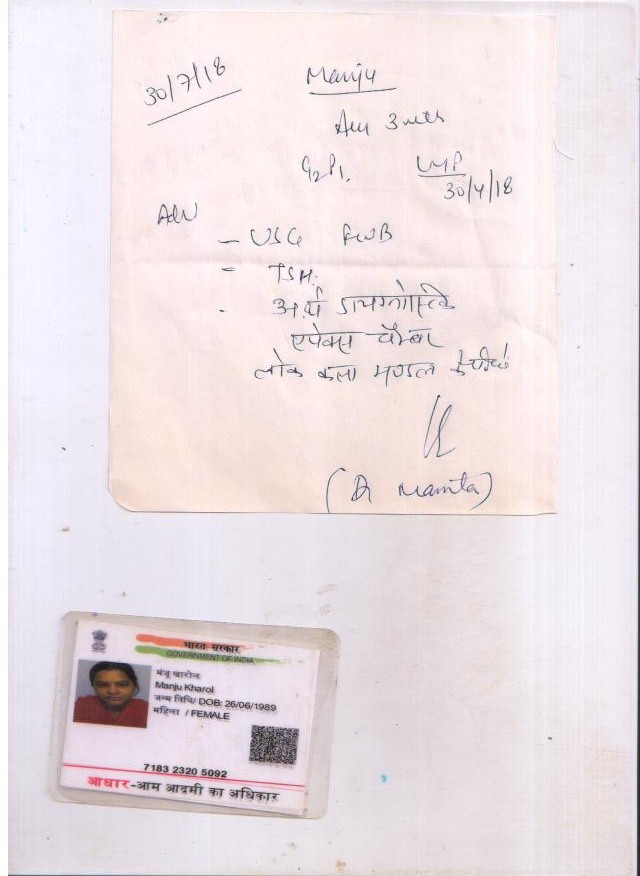 30/7/18
Manju
Am 3 mth
G2P1. LMP
30/4/18
Adv
- USG FWB
= TSH.
. अर्थ डायग्नोस्टिक
एपेक्स चैम्बर
लोक कला मण्डल के पीछे
(Dr Mamta)
भारत सरकार
GOVERNMENT OF INDIA
मंजू खारोल
Manju Kharol
जन्म तिथि/ DOB: 26/06/1989
महिला / FEMALE
7183 2320 5092
आधार-आम आदमी का अधिकार